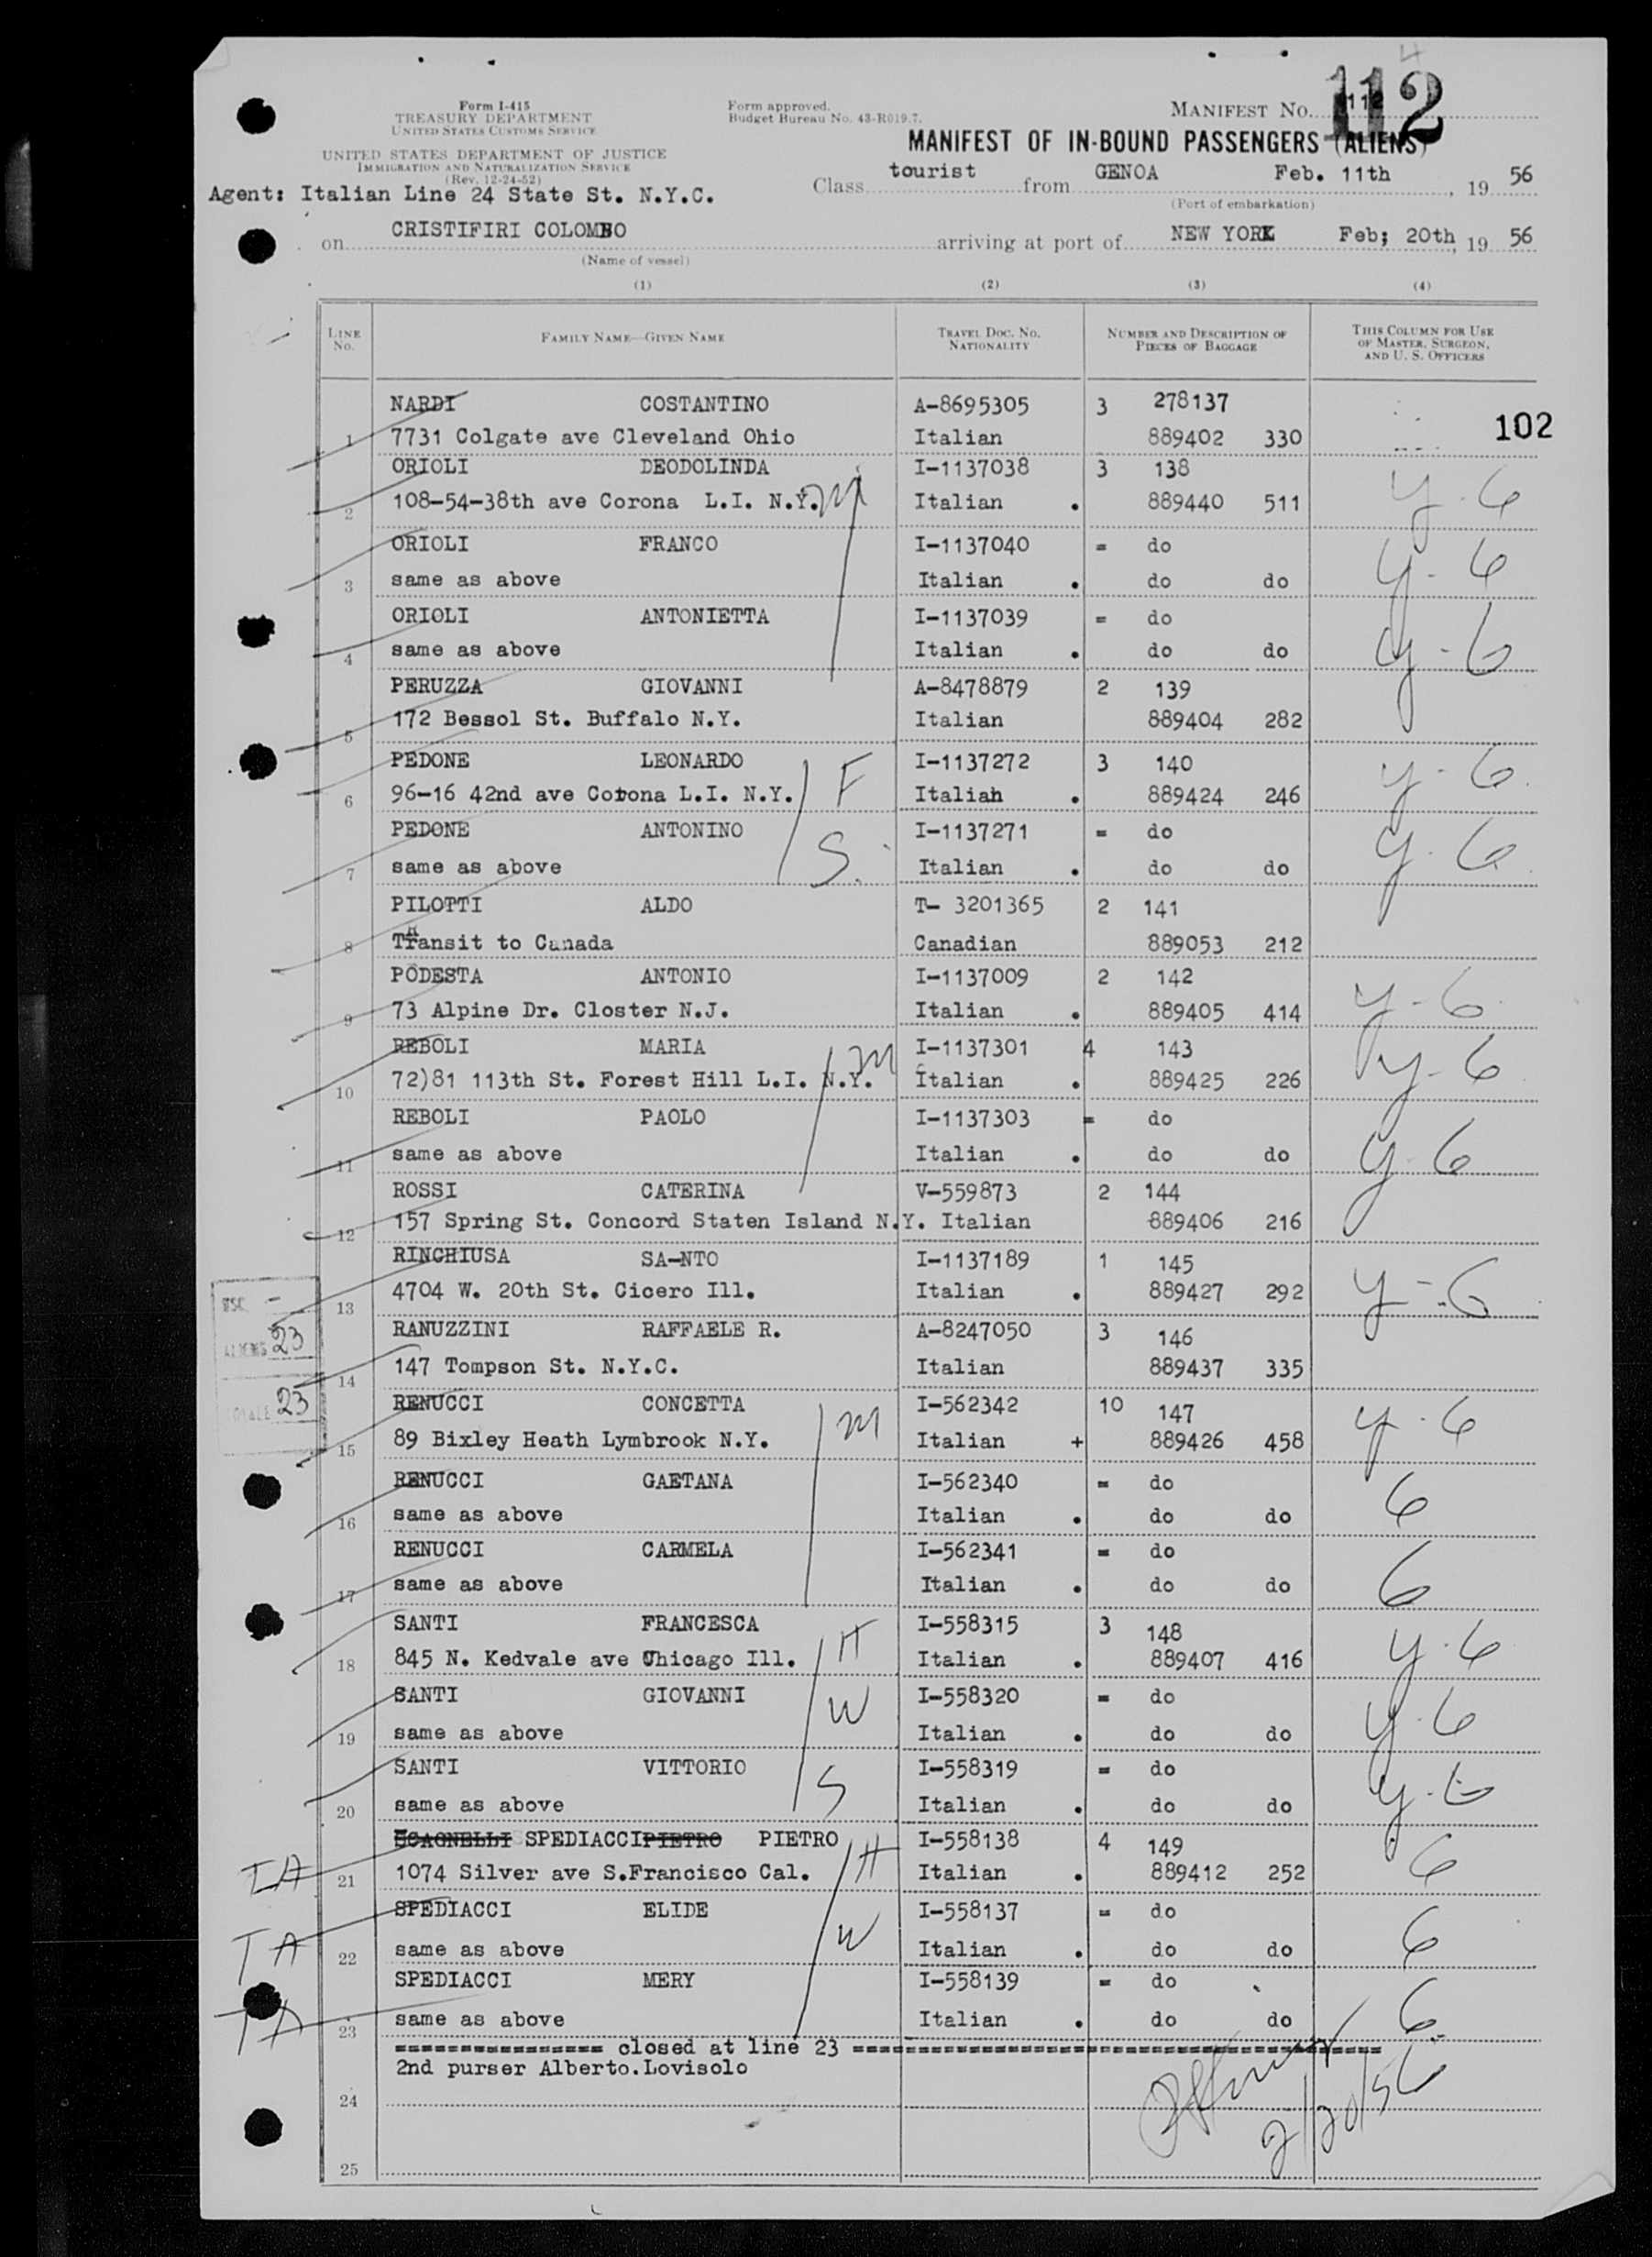 112
Form I-415
TREASURY DEPARTMENT
UNITED STATES CUSTOMS SERVICE
Form approved.
Budget Bureau No. 43-R019.7.
MANIFEST No. 112
MANIFEST OF IN-BOUND PASSENGERS (ALIENS)
UNITED STATES DEPARTMENT OF JUSTICE
IMMIGRATION AND NATURALIZATION SERVICE
(Rev. 12-24-52)
Agent: Italian Line 24 State St. N.Y.C.
Class tourist from GENOA Feb. 11th, 19 56
(Port of embarkation)
on CRISTIFIRI COLOMBO arriving at port of NEW YORK Feb; 20th, 19 56
(Name of vessel)
(1) (2) (3) (4)
LINE No. FAMILY NAME—GIVEN NAME TRAVEL DOC. No. NATIONALITY NUMBER AND DESCRIPTION OF PIECES OF BAGGAGE THIS COLUMN FOR USE OF MASTER, SURGEON, AND U. S. OFFICERS
NARDI COSTANTINO A-8695305 3 278137
102
1 7731 Colgate ave Cleveland Ohio Italian 889402 330
ORIOLI DEODOLINDA I-1137038 3 138
2 108-54-38th ave Corona L.I. N.Y. M Italian . 889440 511 y-6
ORIOLI FRANCO I-1137040 = do
3 same as above Italian . do do y-6
ORIOLI ANTONIETTA I-1137039 = do
4 same as above Italian . do do y-6
PERUZZA GIOVANNI A-8478879 2 139
5 172 Bessol St. Buffalo N.Y. Italian 889404 282
PEDONE LEONARDO I-1137272 3 140
6 96-16 42nd ave Corona L.I. N.Y. F Italian . 889424 246 y-6
PEDONE ANTONINO I-1137271 = do
7 same as above S. Italian . do do y-6
PILOTTI ALDO T- 3201365 2 141
8 Transit to Canada Canadian 889053 212
PODESTA ANTONIO I-1137009 2 142
9 73 Alpine Dr. Closter N.J. Italian . 889405 414 y-6
REBOLI MARIA I-1137301 4 143
10 72)81 113th St. Forest Hill L.I. N.Y. M Italian . 889425 226 y-6
REBOLI PAOLO I-1137303 = do
11 same as above Italian . do do y-6
ROSSI CATERINA V-559873 2 144
12 157 Spring St. Concord Staten Island N.Y. Italian 889406 216
RINCHIUSA SA-NTO I-1137189 1 145
13 4704 W. 20th St. Cicero Ill. Italian . 889427 292 y-6
RANUZZINI RAFFAELE R. A-8247050 3 146
ALIENS 23
14 147 Tompson St. N.Y.C. Italian 889437 335
TOTALE 23
RENUCCI CONCETTA I-562342 10 147
15 89 Bixley Heath Lymbrook N.Y. M Italian + 889426 458 y-6
RENUCCI GAETANA I-562340 = do
16 same as above Italian . do do 6
RENUCCI CARMELA I-562341 = do
17 same as above Italian . do do 6
SANTI FRANCESCA I-558315 3 148
18 845 N. Kedvale ave Chicago Ill. H Italian . 889407 416 y-6
SANTI GIOVANNI I-558320 = do
19 same as above W Italian . do do y-6
SANTI VITTORIO I-558319 = do
20 same as above S Italian . do do y-6
SCAGNELLI SPEDIACCI PIETRO PIETRO I-558138 4 149
TA 21 1074 Silver ave S.Francisco Cal. H Italian . 889412 252 6
SPEDIACCI ELIDE I-558137 = do
TA 22 same as above W Italian . do do 6
SPEDIACCI MERY I-558139 = do
TA 23 same as above Italian . do do 6
================ closed at line 23 ========================================
2nd purser Alberto.Lovisolo
24
2/20/56
25